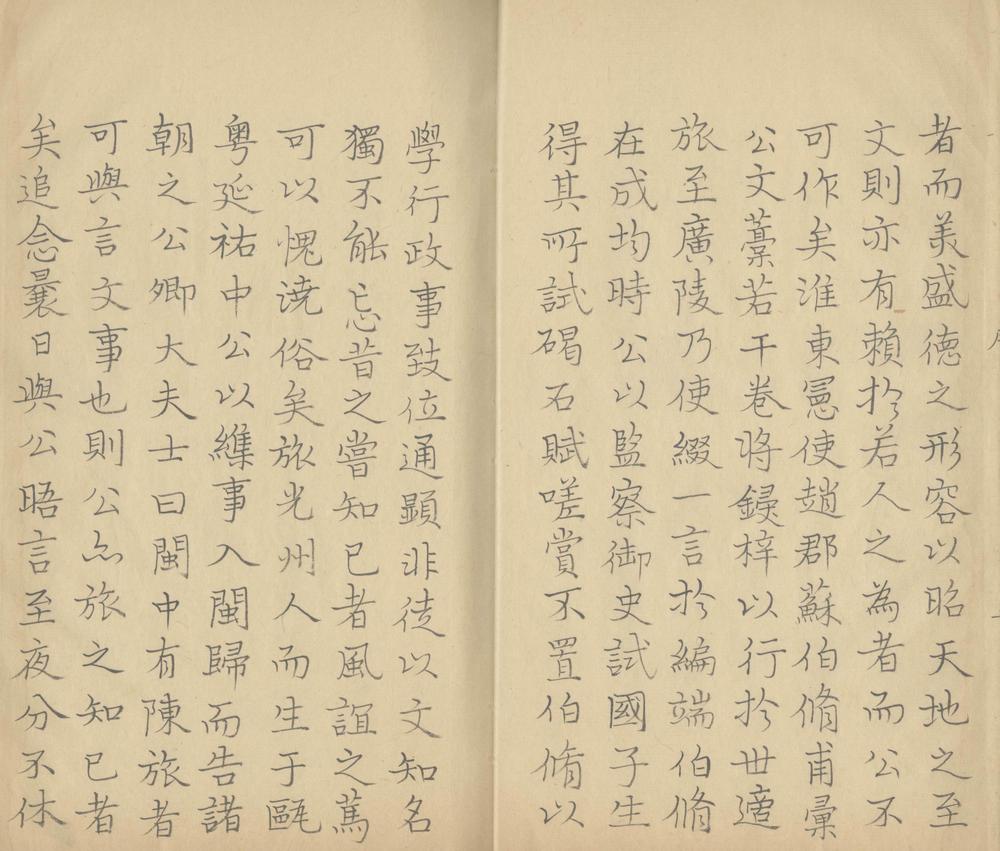 者而美盛德之形容以昭天地之至
文則亦有賴扵若人之為者而公不
可作矣淮東憲使趙郡蘇伯脩甫彙
公文藳若干卷將鋟梓以行扵世適
旅至廣陵乃使綴一言扵編端伯脩
在成均時公以監察御史試國子生
得其所試碣石賦嗟賞不置伯脩以
學行政事致位通顯非徒以文知名
獨不能忘昔之嘗知已者風誼之篤
可以愧澆俗矣旅光州人而生于甌
粤延祐中公以縴事入閩歸而告諸
朝之公卿大夫士曰閩中有陳旅者
可與言文事也則公亦旅之知已者
矣追念曩日與公晤言至夜分不休